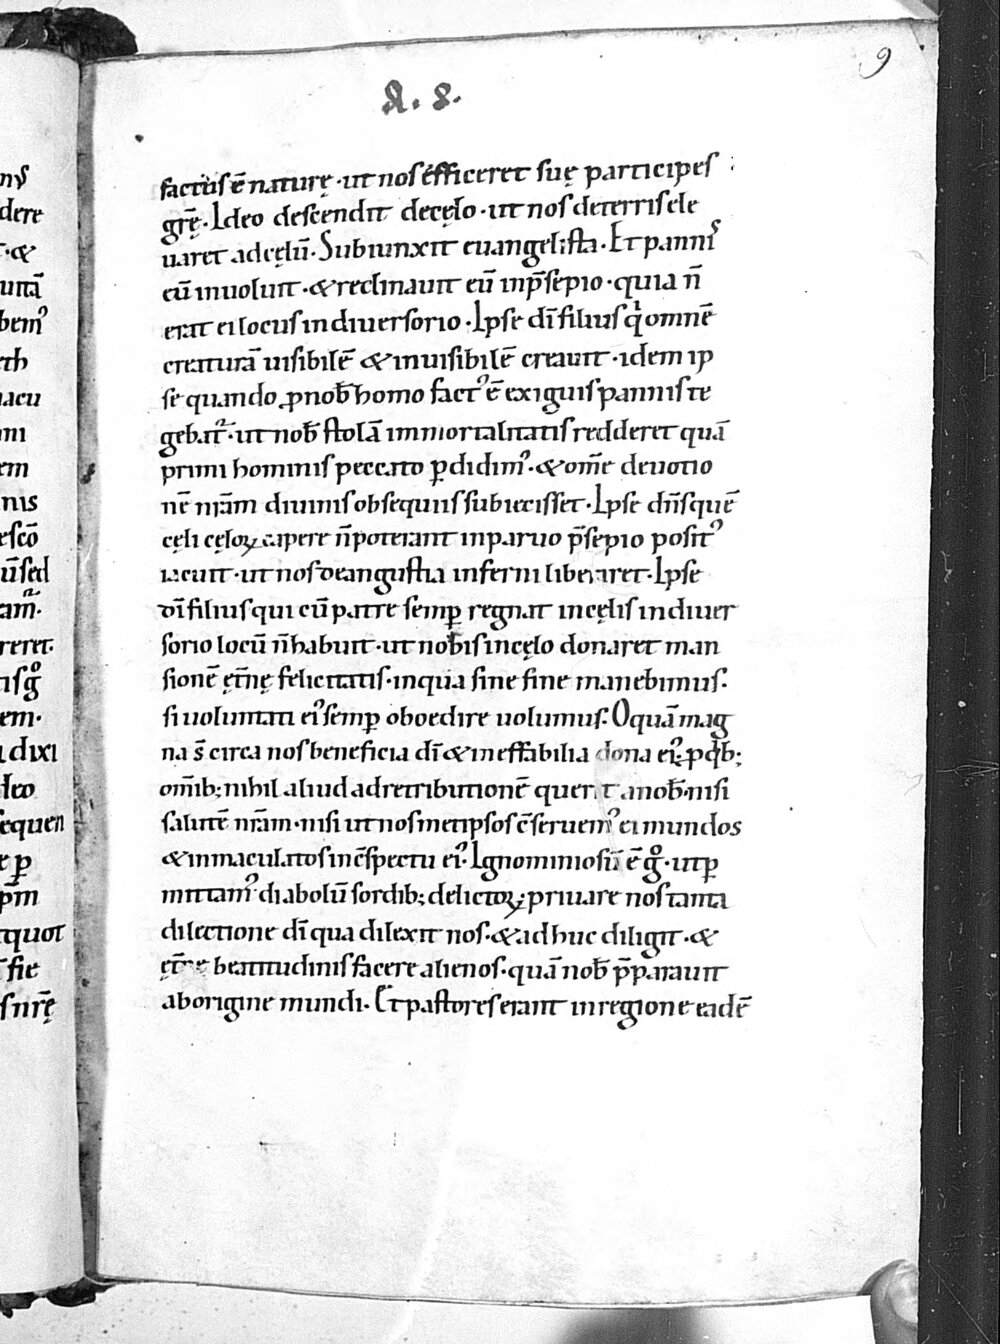 9
A. 8.
factus ē naturę · ut nos efficeret suę participes
grę̄. Ideo descendit decęlo · ut nos deterris ele
uaret adcęlū. Subiunxit euangelista. Et pannis
eū inuoluit · & reclinauit eū inp̄sepio · quia n̄
erat ei locus indiuersorio. Ipse dī filius qͥ omnē
creaturā uisibilē & inuisibilē creauit · idem ip
se quando ꝓ nob̄ homo factꝰ ē exiguis pannis te
gebat᷒ · ut nob̄ stolā immortalitatis redderet quā
primi hominis peccato ꝑdidimꝰ · & om̄e deuotio
nē nr̄am diuinis obsequiis subiecisset. Ipse dn̄s quē
cęli cęloꝝ capere n̄ poterant inparuo p̄sepio positꝰ
iacuit · ut nos deangustia inferni liberaret. Ipse
dī filius qui cū patre semꝑ regnat incęlis indiuer
sorio locū n̄ habuit · ut nobis incęlo donaret man
sionē ęt̄nę felicitatis · inqua sine fine manebimus.
si uoluntati eiꝰ semꝑ oboedire uolumus. O quā mag
na s̄ circa nos beneficia dī & ineffabilia dona eiꝰ · ꝓ qͥb;
om̄ib; nihil aliud adretributionē querit anob̄ · nisi
salutē nr̄am · nisi ut nosmetipsos c̄seruemꝰ ei mundos
& immaculatos inc̄spectu eiꝰ. Ignominiosū ē gͦ · ut ꝑ
mittamꝰ diabolū sordib; delictoꝝ priuare nos tanta
dilectione dī qua dilexit nos · & adhuc diligit · &
ęt̄nę beatitudinis facere alienos · quā nob̄ p̄parauit
aborigine mundi. Et pastores erant inregione eadē